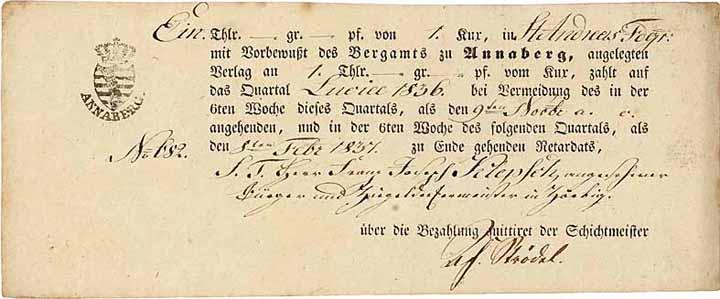 Ein. Thlr. — gr. — pf. von 1. Kux, in St Andreas Fdgr:
mit Vorbewußt des Bergamts zu Annaberg, angelegten
Verlag an 1. Thlr. — gr. — pf. vom Kux, zahlt auf
das Quartal Luciae 1836. bei Vermeidung des in der
6ten Woche dieses Quartals, als den 9ten Novbr. a. c.
angehenden, und in der 6ten Woche des folgenden Quartals, als
den 8ten Febr 1837. zu Ende gehenden Retardats,
ANNABERG.
No. 682.
Herr Franz Joseph angesehener
Bürger und in
über die Bezahlung quittiret der Schichtmeister
Ströbel.